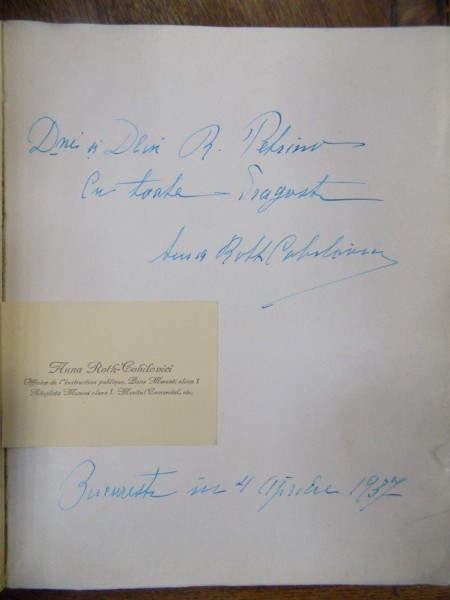 Dnei și Dlui R. Petrino
Cu toate dragoste
Anna Roth Cobilovici
Anna Roth-Cobilovici
Officier de l'instruction publique, Bene Merenti clasa I
Răsplata Muncei clasa I, Meritul Comercial, etc.
București în 4 Aprilie 1937